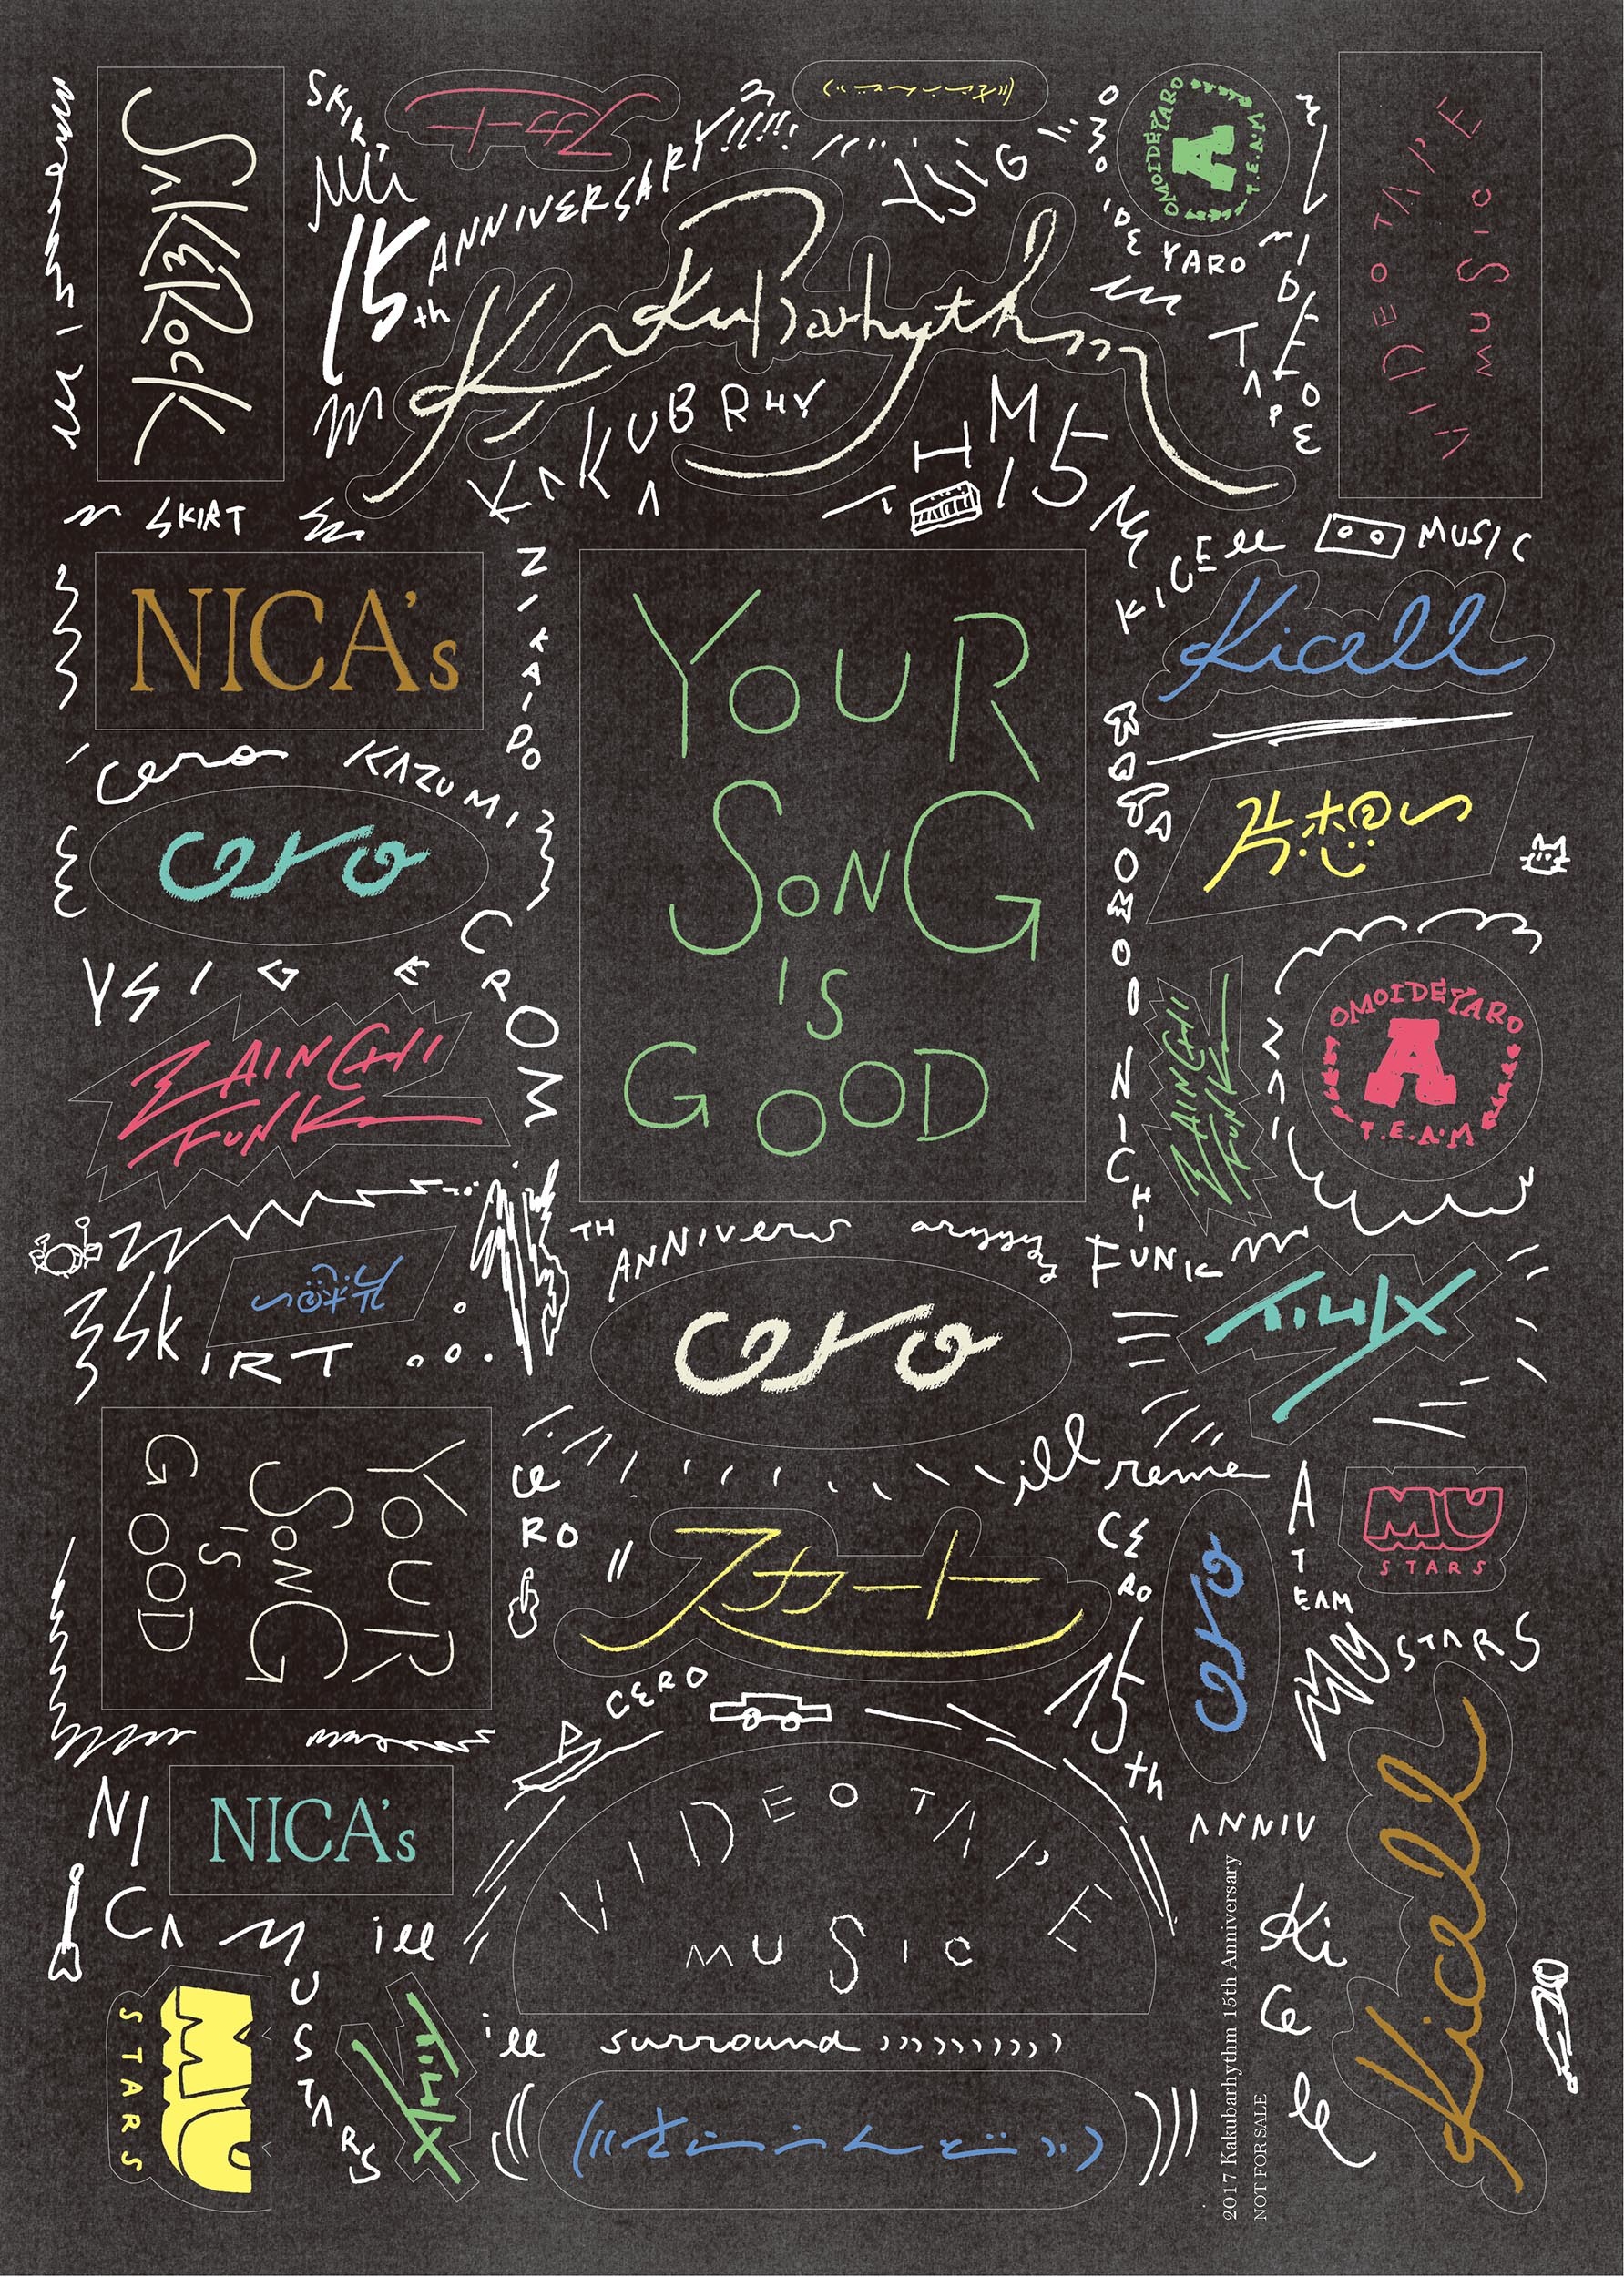 SAKEROCK
SKIRT
スカート
ANNIVERSARY!!!!!
15th
Kakubarhythm
YSIG
OMOIDEYARO
A
T.E.A.M
OMOIDE YARO
VIDEOTAPE
MUSIC
VIDEO
TAPE
KAKUBARHY
THM
15
SKIRT
NICA's
NIKAIDO
KAZUMI
YOUR
SONG
IS
GOOD
KICELL
MUSIC
Kicell
cero
cero
片想い
KATAOMOI
YSIG
CROW
ZAINICHI
FUNK
ZAINICHI
FUNK
NICHI
FUNK
OMOIDEYARO
A
T.E.A.M
片想い
SKIRT
TH
ANNIVERS
aryyyy
cero
YOUR
SONG
IS
GOOD
CERO
illreme
スカート
CERO
cero
A
TEAM
MU
STARS
MU
STARS
CERO
15th
ANNIV
NICA's
NI
CA
ill
VIDEOTAPE
MUSIC
MU
STARS
MUSTARS
ill
surround
KiCell
Kicell
2017 Kakubarhythm 15th Anniversary
NOT FOR SALE